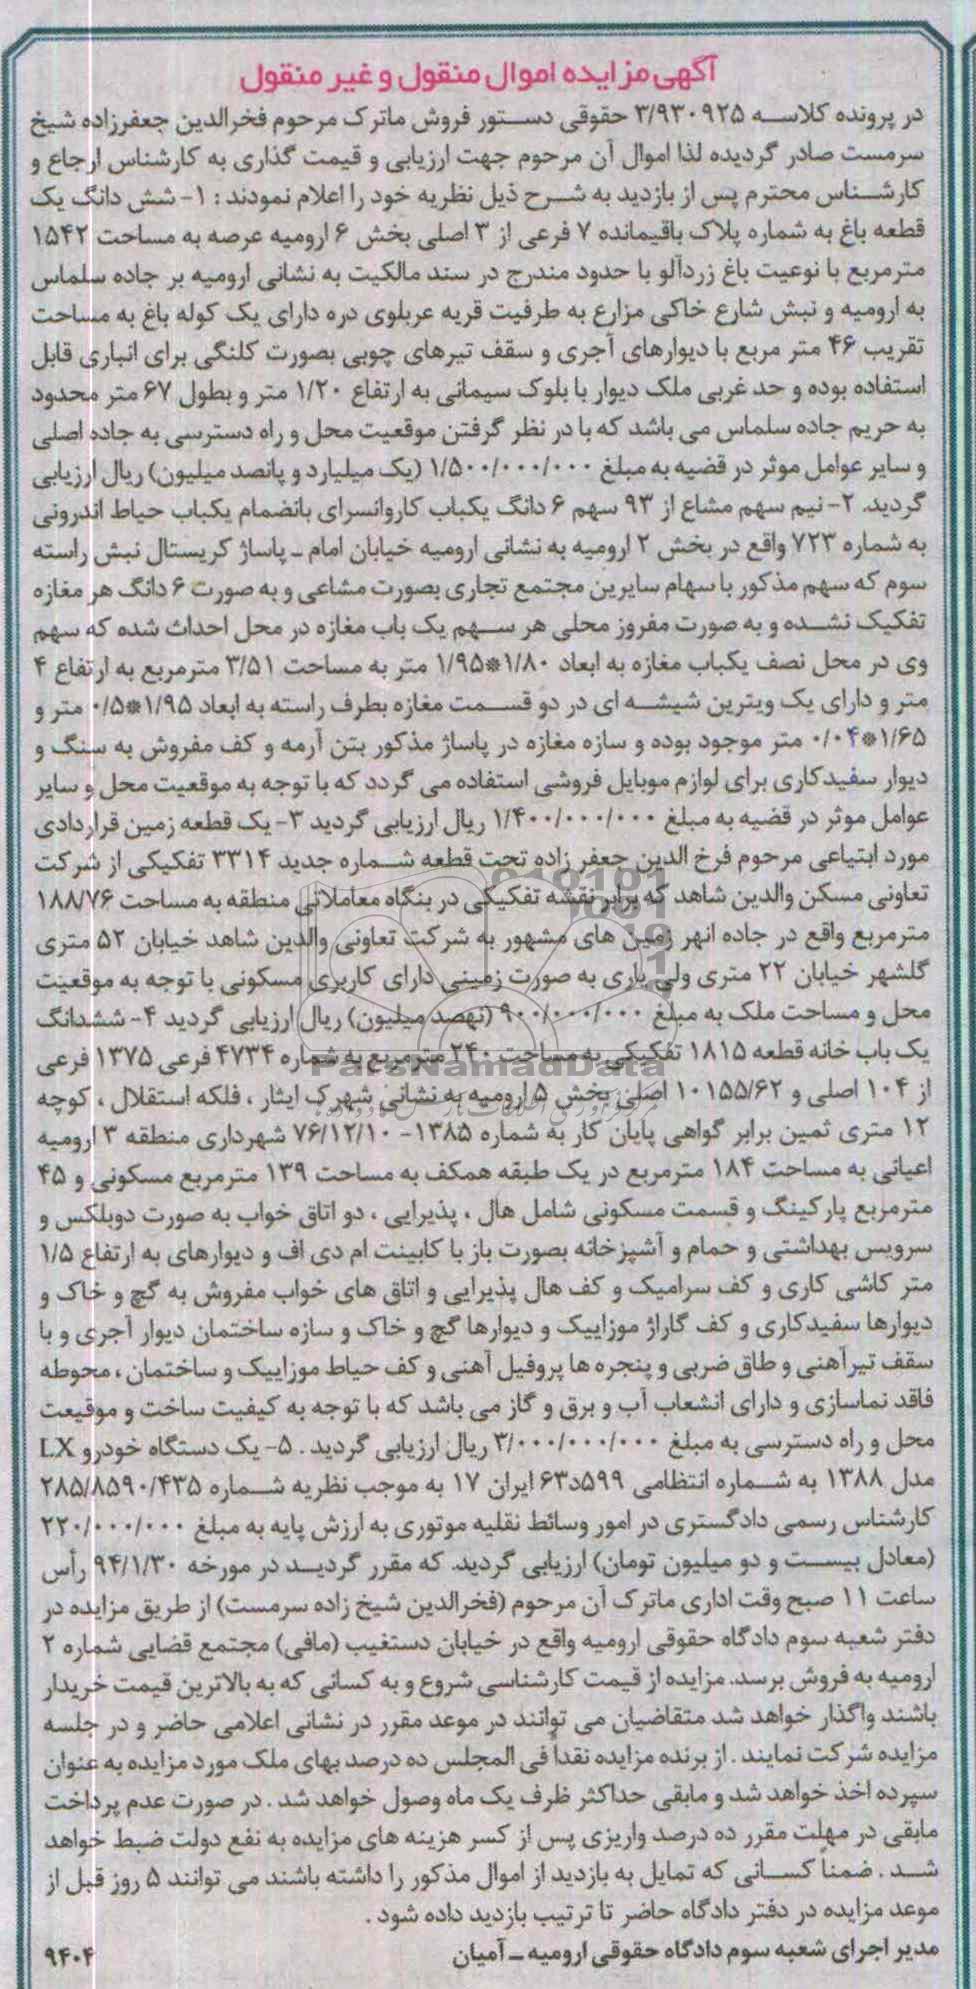 آگهی مزایده اموال منقول و غیر منقول
در پرونده کلاسه ۳/۹۳۰۹۲۵ حقوقی دستور فروش ماترک مرحوم فخرالدین جعفرزاده شیخ
سرمست صادر گردیده لذا اموال آن مرحوم جهت ارزیابی و قیمت گذاری به کارشناس ارجاع و
کارشناس محترم پس از بازدید به شرح ذیل نظریه خود را اعلام نمودند : ۱- شش دانگ یک
قطعه باغ به شماره پلاک باقیمانده ۷ فرعی از ۳ اصلی بخش ۶ ارومیه عرصه به مساحت ۱۵۴۲
مترمربع با نوعیت باغ زردآلو با حدود مندرج در سند مالکیت به نشانی ارومیه بر جاده سلماس
به ارومیه و نبش شارع خاکی مزارع به طرفیت قریه عربلوی دره دارای یک کوله باغ به مساحت
تقریب ۴۶ متر مربع با دیوارهای آجری و سقف تیرهای چوبی بصورت کلنگی برای انباری قابل
استفاده بوده و حد غربی ملک دیوار با بلوک سیمانی به ارتفاع ۱/۲۰ متر و بطول ۶۷ متر محدود
به حریم جاده سلماس می باشد که با در نظر گرفتن موقعیت محل و راه دسترسی به جاده اصلی
و سایر عوامل موثر در قضیه به مبلغ ۱/۵۰۰/۰۰۰/۰۰۰ (یک میلیارد و پانصد میلیون) ریال ارزیابی
گردید. ۲- نیم سهم مشاع از ۹۳ سهم ۶ دانگ یکباب کاروانسرای بانضمام یکباب حیاط اندرونی
به شماره ۷۲۳ واقع در بخش ۲ ارومیه به نشانی ارومیه خیابان امام ـ پاساژ کریستال نبش راسته
سوم که سهم مذکور با سهام سایرین مجتمع تجاری بصورت مشاعی و به صورت ۶ دانگ هر مغازه
تفکیک نشده و به صورت مفروز محلی هر سهم یک باب مغازه در محل احداث شده که سهم
وی در محل نصف یکباب مغازه به ابعاد ۱/۸۰*۱/۹۵ متر به مساحت ۳/۵۱ مترمربع به ارتفاع ۴
متر و دارای یک ویترین شیشه ای در دو قسمت مغازه بطرف راسته به ابعاد ۱/۹۵*۰/۵ متر و
۱/۶۵*۰/۰۴ متر موجود بوده و سازه مغازه در پاساژ مذکور بتن آرمه و کف مفروش به سنگ و
دیوار سفیدکاری برای لوازم موبایل فروشی استفاده می گردد که با توجه به موقعیت محل و سایر
عوامل موثر در قضیه به مبلغ ۱/۴۰۰/۰۰۰/۰۰۰ ریال ارزیابی گردید ۳- یک قطعه زمین قراردادی
مورد ابتیاعی مرحوم فرخ الدین جعفر زاده تحت قطعه شماره جدید ۳۳۱۴ تفکیکی از شرکت
تعاونی مسکن والدین شاهد که برابر نقشه تفکیکی در بنگاه معاملاتی منطقه به مساحت ۱۸۸/۷۶
مترمربع واقع در جاده انهر زمین های مشهور به شرکت تعاونی والدین شاهد خیابان ۵۲ متری
گلشهر خیابان ۲۲ متری ولی یاری به صورت زمینی دارای کاربری مسکونی با توجه به موقعیت
محل و مساحت ملک به مبلغ ۹۰۰/۰۰۰/۰۰۰ (نهصد میلیون) ریال ارزیابی گردید ۴- ششدانگ
یک باب خانه قطعه ۱۸۱۵ تفکیکی به مساحت ۲۴۰ مترمربع به شماره ۴۷۳۴ فرعی ۱۳۷۵ فرعی
از ۱۰۴ اصلی و ۱۰۱۵۵/۶۲ اصلی بخش ۵ ارومیه به نشانی شهرک ایثار ، فلکه استقلال ، کوچه
۱۲ متری ثمین برابر گواهی پایان کار به شماره ۱۳۸۵- ۷۶/۱۲/۱۰ شهرداری منطقه ۳ ارومیه
اعیانی به مساحت ۱۸۴ مترمربع در یک طبقه همکف به مساحت ۱۳۹ مترمربع مسکونی و ۴۵
مترمربع پارکینگ و قسمت مسکونی شامل هال ، پذیرایی ، دو اتاق خواب به صورت دوبلکس و
سرویس بهداشتی و حمام و آشپزخانه بصورت باز با کابینت ام دی اف و دیوارهای به ارتفاع ۱/۵
متر کاشی کاری و کف سرامیک و کف هال پذیرایی و اتاق های خواب مفروش به گچ و خاک و
دیوارها سفیدکاری و کف گاراژ موزاییک و دیوارها گچ و خاک و سازه ساختمان دیوار آجری و با
سقف تیرآهنی و طاق ضربی و پنجره ها پروفیل آهنی و کف حیاط موزاییک و ساختمان ، محوطه
فاقد نماسازی و دارای انشعاب آب و برق و گاز می باشد که با توجه به کیفیت ساخت و موقیعت
محل و راه دسترسی به مبلغ ۳/۰۰۰/۰۰۰/۰۰۰ ریال ارزیابی گردید . ۵- یک دستگاه خودرو LX
مدل ۱۳۸۸ به شماره انتظامی ۵۹۹د۶۳ ایران ۱۷ به موجب نظریه شماره ۲۸۵/۸۵۹۰/۴۳۵
کارشناس رسمی دادگستری در امور وسائط نقلیه موتوری به ارزش پایه به مبلغ ۲۲۰/۰۰۰/۰۰۰
(معادل بیست و دو میلیون تومان) ارزیابی گردید. که مقرر گردید در مورخه ۹۴/۱/۳۰ رأس
ساعت ۱۱ صبح وقت اداری ماترک آن مرحوم (فخرالدین شیخ زاده سرمست) از طریق مزایده در
دفتر شعبه سوم دادگاه حقوقی ارومیه واقع در خیابان دستغیب (مافی) مجتمع قضایی شماره ۲
ارومیه به فروش برسد. مزایده از قیمت کارشناسی شروع و به کسانی که به بالاترین قیمت خریدار
باشند واگذار خواهد شد متقاضیان می توانند در موعد مقرر در نشانی اعلامی حاضر و در جلسه
مزایده شرکت نمایند . از برنده مزایده نقداً فی المجلس ده درصد بهای ملک مورد مزایده به عنوان
سپرده اخذ خواهد شد و مابقی حداکثر ظرف یک ماه وصول خواهد شد . در صورت عدم پرداخت
مابقی در مهلت مقرر ده درصد واریزی پس از کسر هزینه های مزایده به نفع دولت ضبط خواهد
شد . ضمناً کسانی که تمایل به بازدید از اموال مذکور را داشته باشند می توانند ۵ روز قبل از
موعد مزایده در دفتر دادگاه حاضر تا ترتیب بازدید داده شود .
مدیر اجرای شعبه سوم دادگاه حقوقی ارومیه ـ آمیان
۹۴۰۴
ParsNamadData